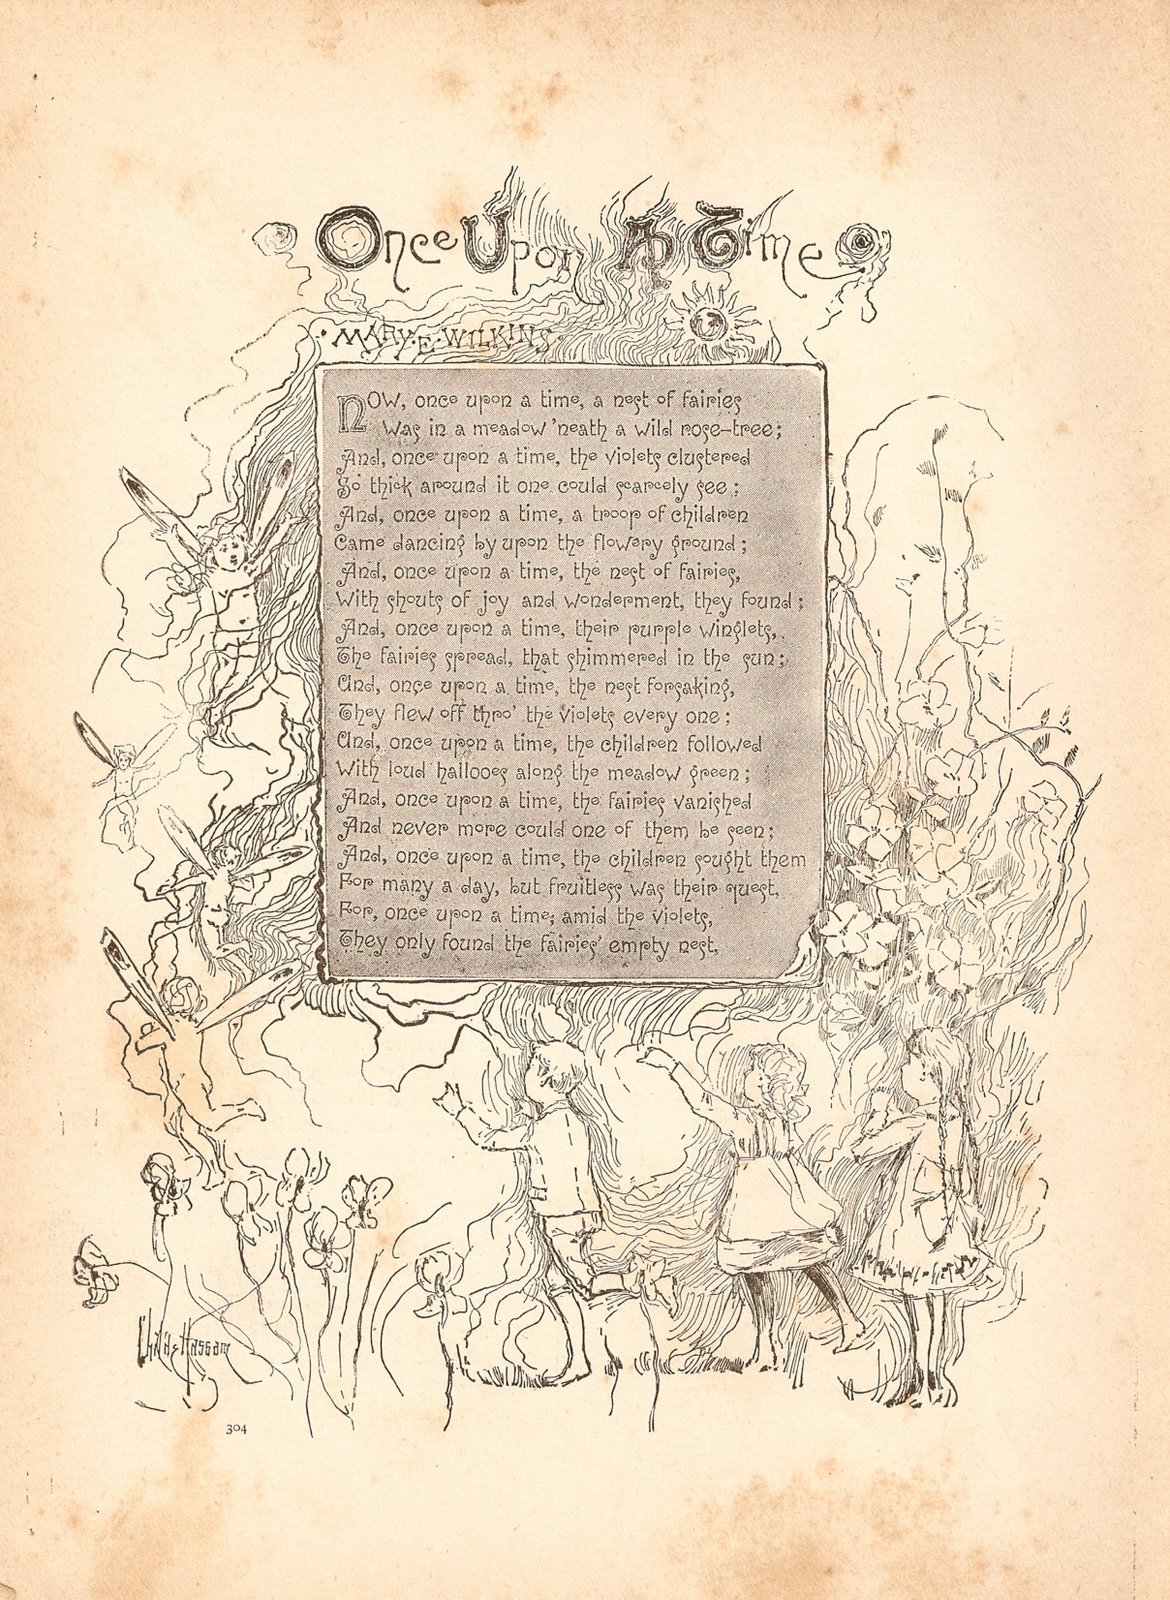 Once Upon A Time
MARY·E·WILKINS·
NOW, once upon a time, a nest of fairies
Was in a meadow 'neath a wild rose-tree;
And, once upon a time, the violets clustered
So thick around it one could scarcely see;
And, once upon a time, a troop of children
Came dancing by upon the flowery ground;
And, once upon a time, the nest of fairies,
With shouts of joy and wonderment, they found;
And, once upon a time, their purple winglets,
The fairies spread, that shimmered in the sun;
And, once upon a time, the nest forsaking,
They flew off thro' the violets every one;
And, once upon a time, the children followed
With loud hallooes along the meadow green;
And, once upon a time, the fairies vanished
And never more could one of them be seen;
And, once upon a time, the children sought them
For many a day, but fruitless was their quest,
For, once upon a time; amid the violets,
They only found the fairies' empty nest,
Childe Hassam
304